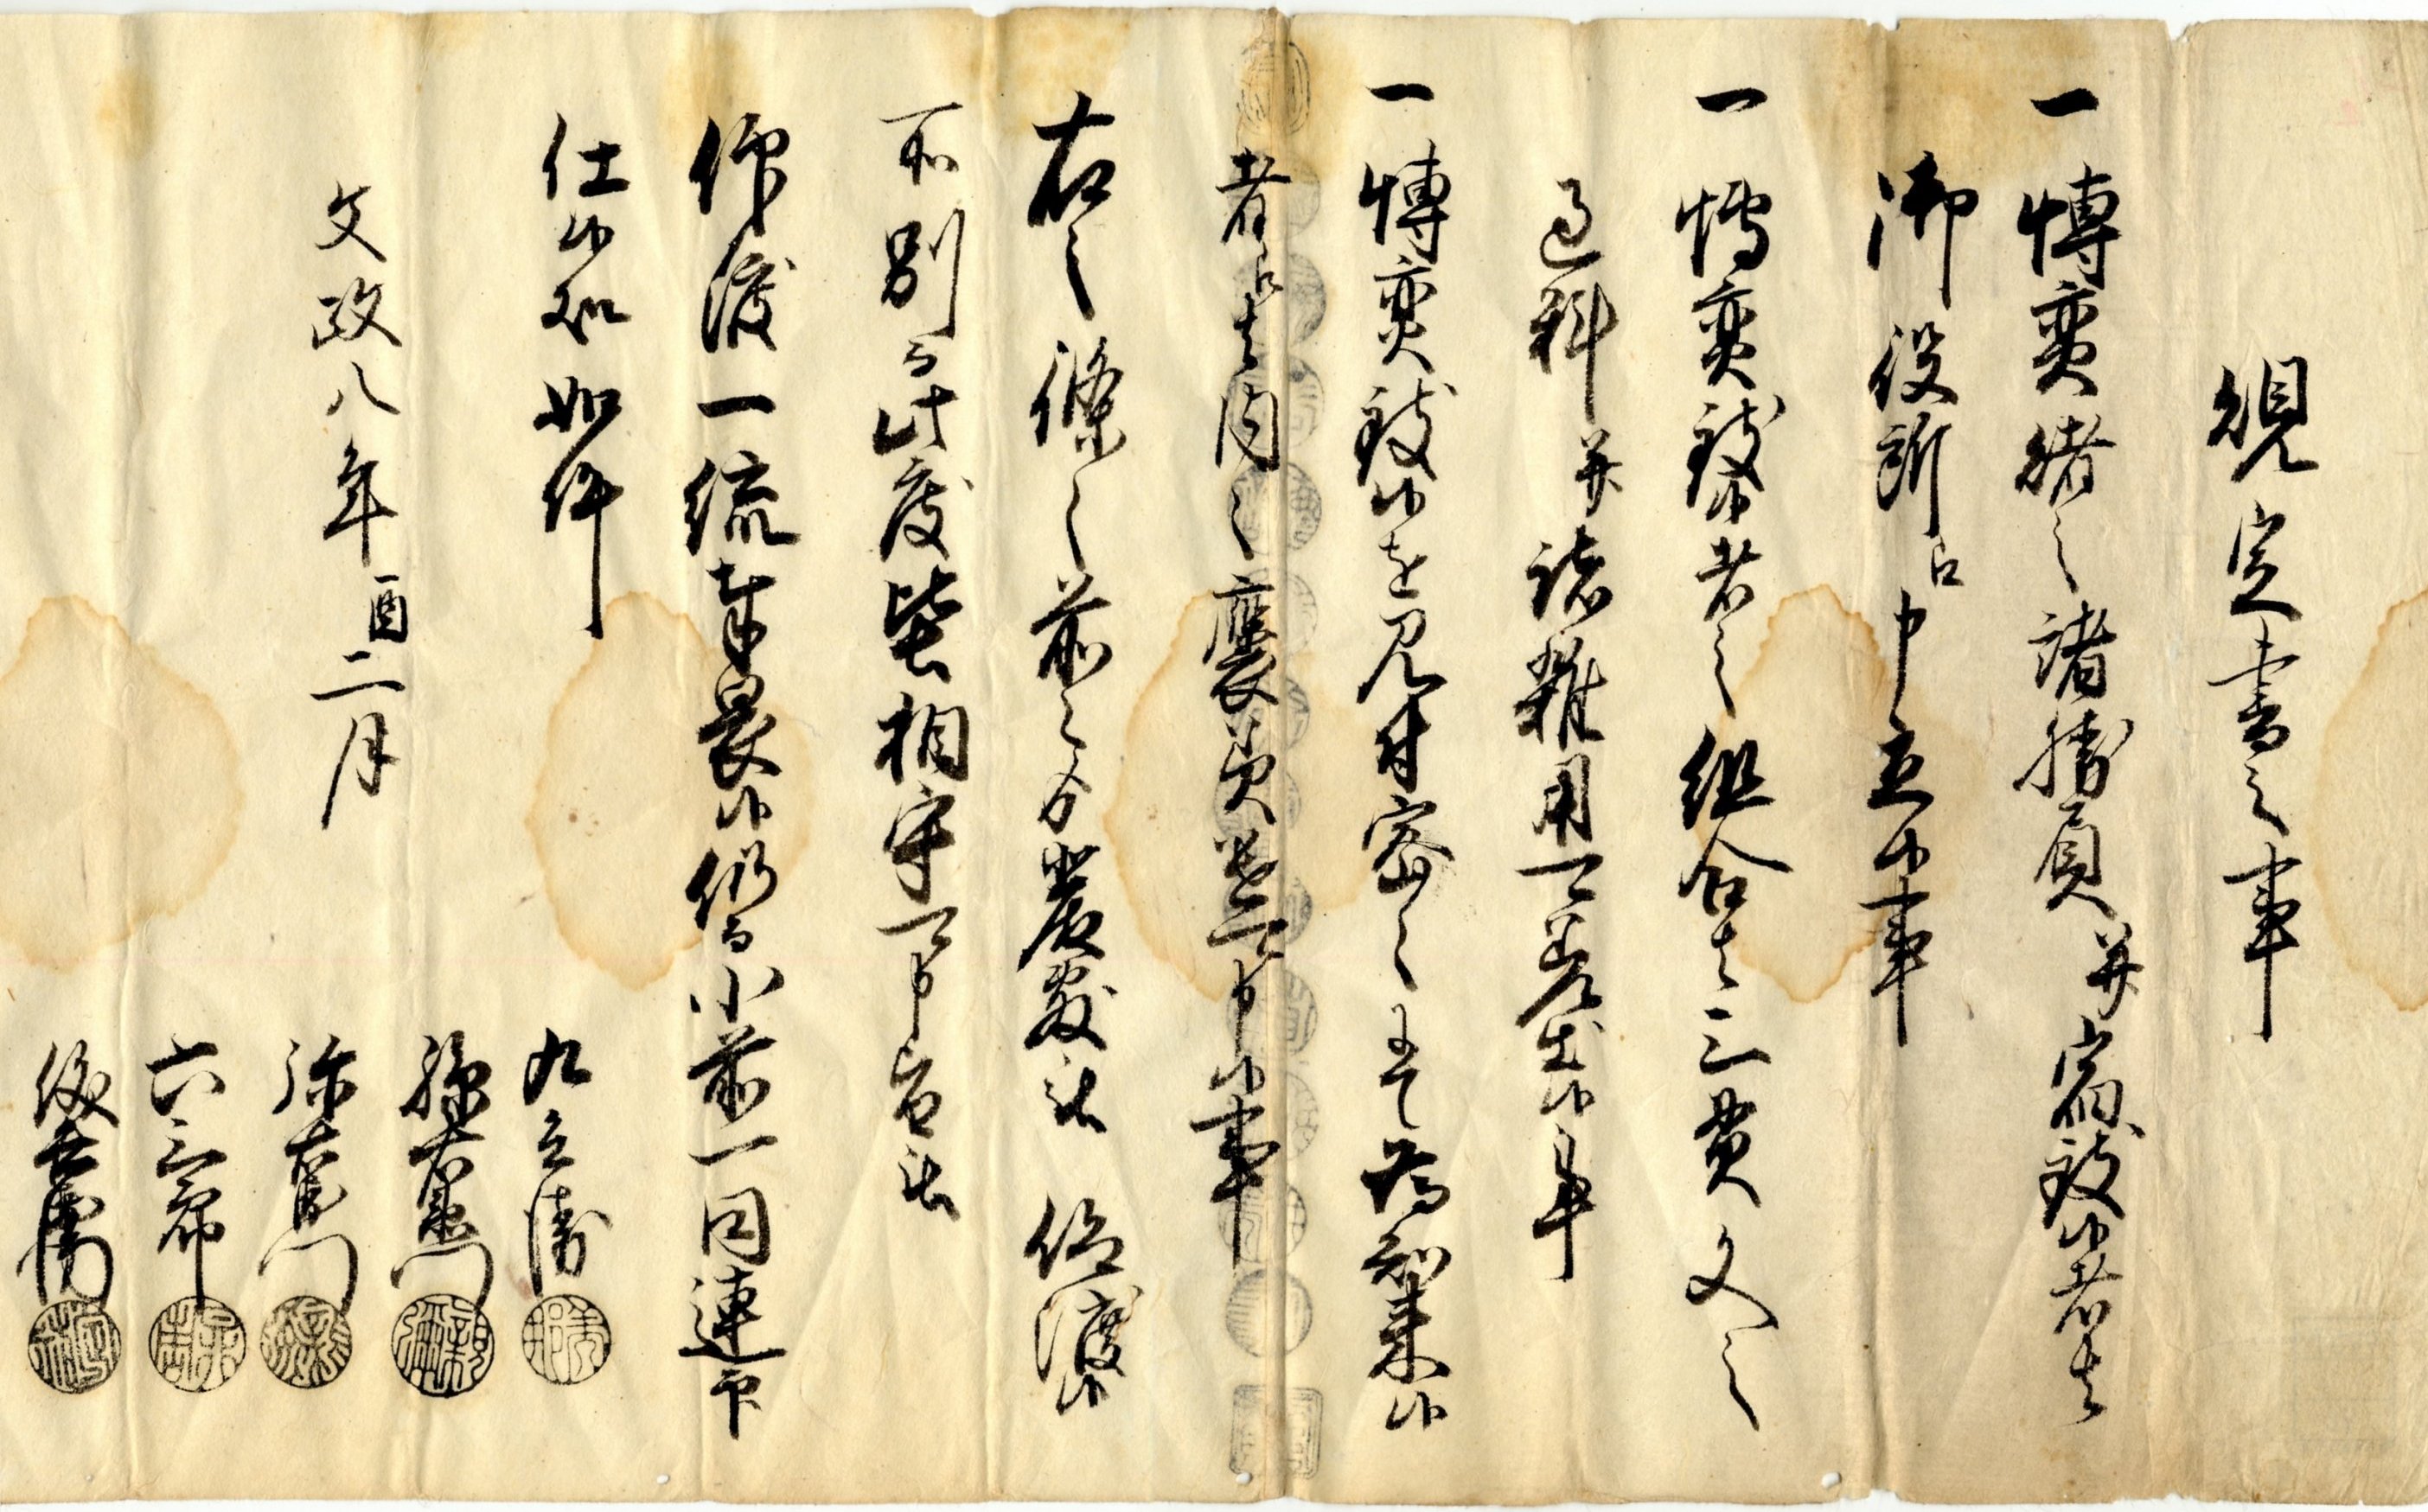 規定書之事
一博奕賭之諸勝負并宿致候者者
御役所江申立候事
一博奕致候者之組合者三貫文之
過料并諸雑用可差出候事
一博奕致候を見付密々ニ而為知来候
者江者内々褒美差遣可申候事
右之條々前々分厳敷被 仰渡候
所別而此度堅相守可申旨被
仰渡一統奉畏候仍而小前一同連印
仕候処如件
文政八年酉二月
九兵衛
弥右衛門
六三郎